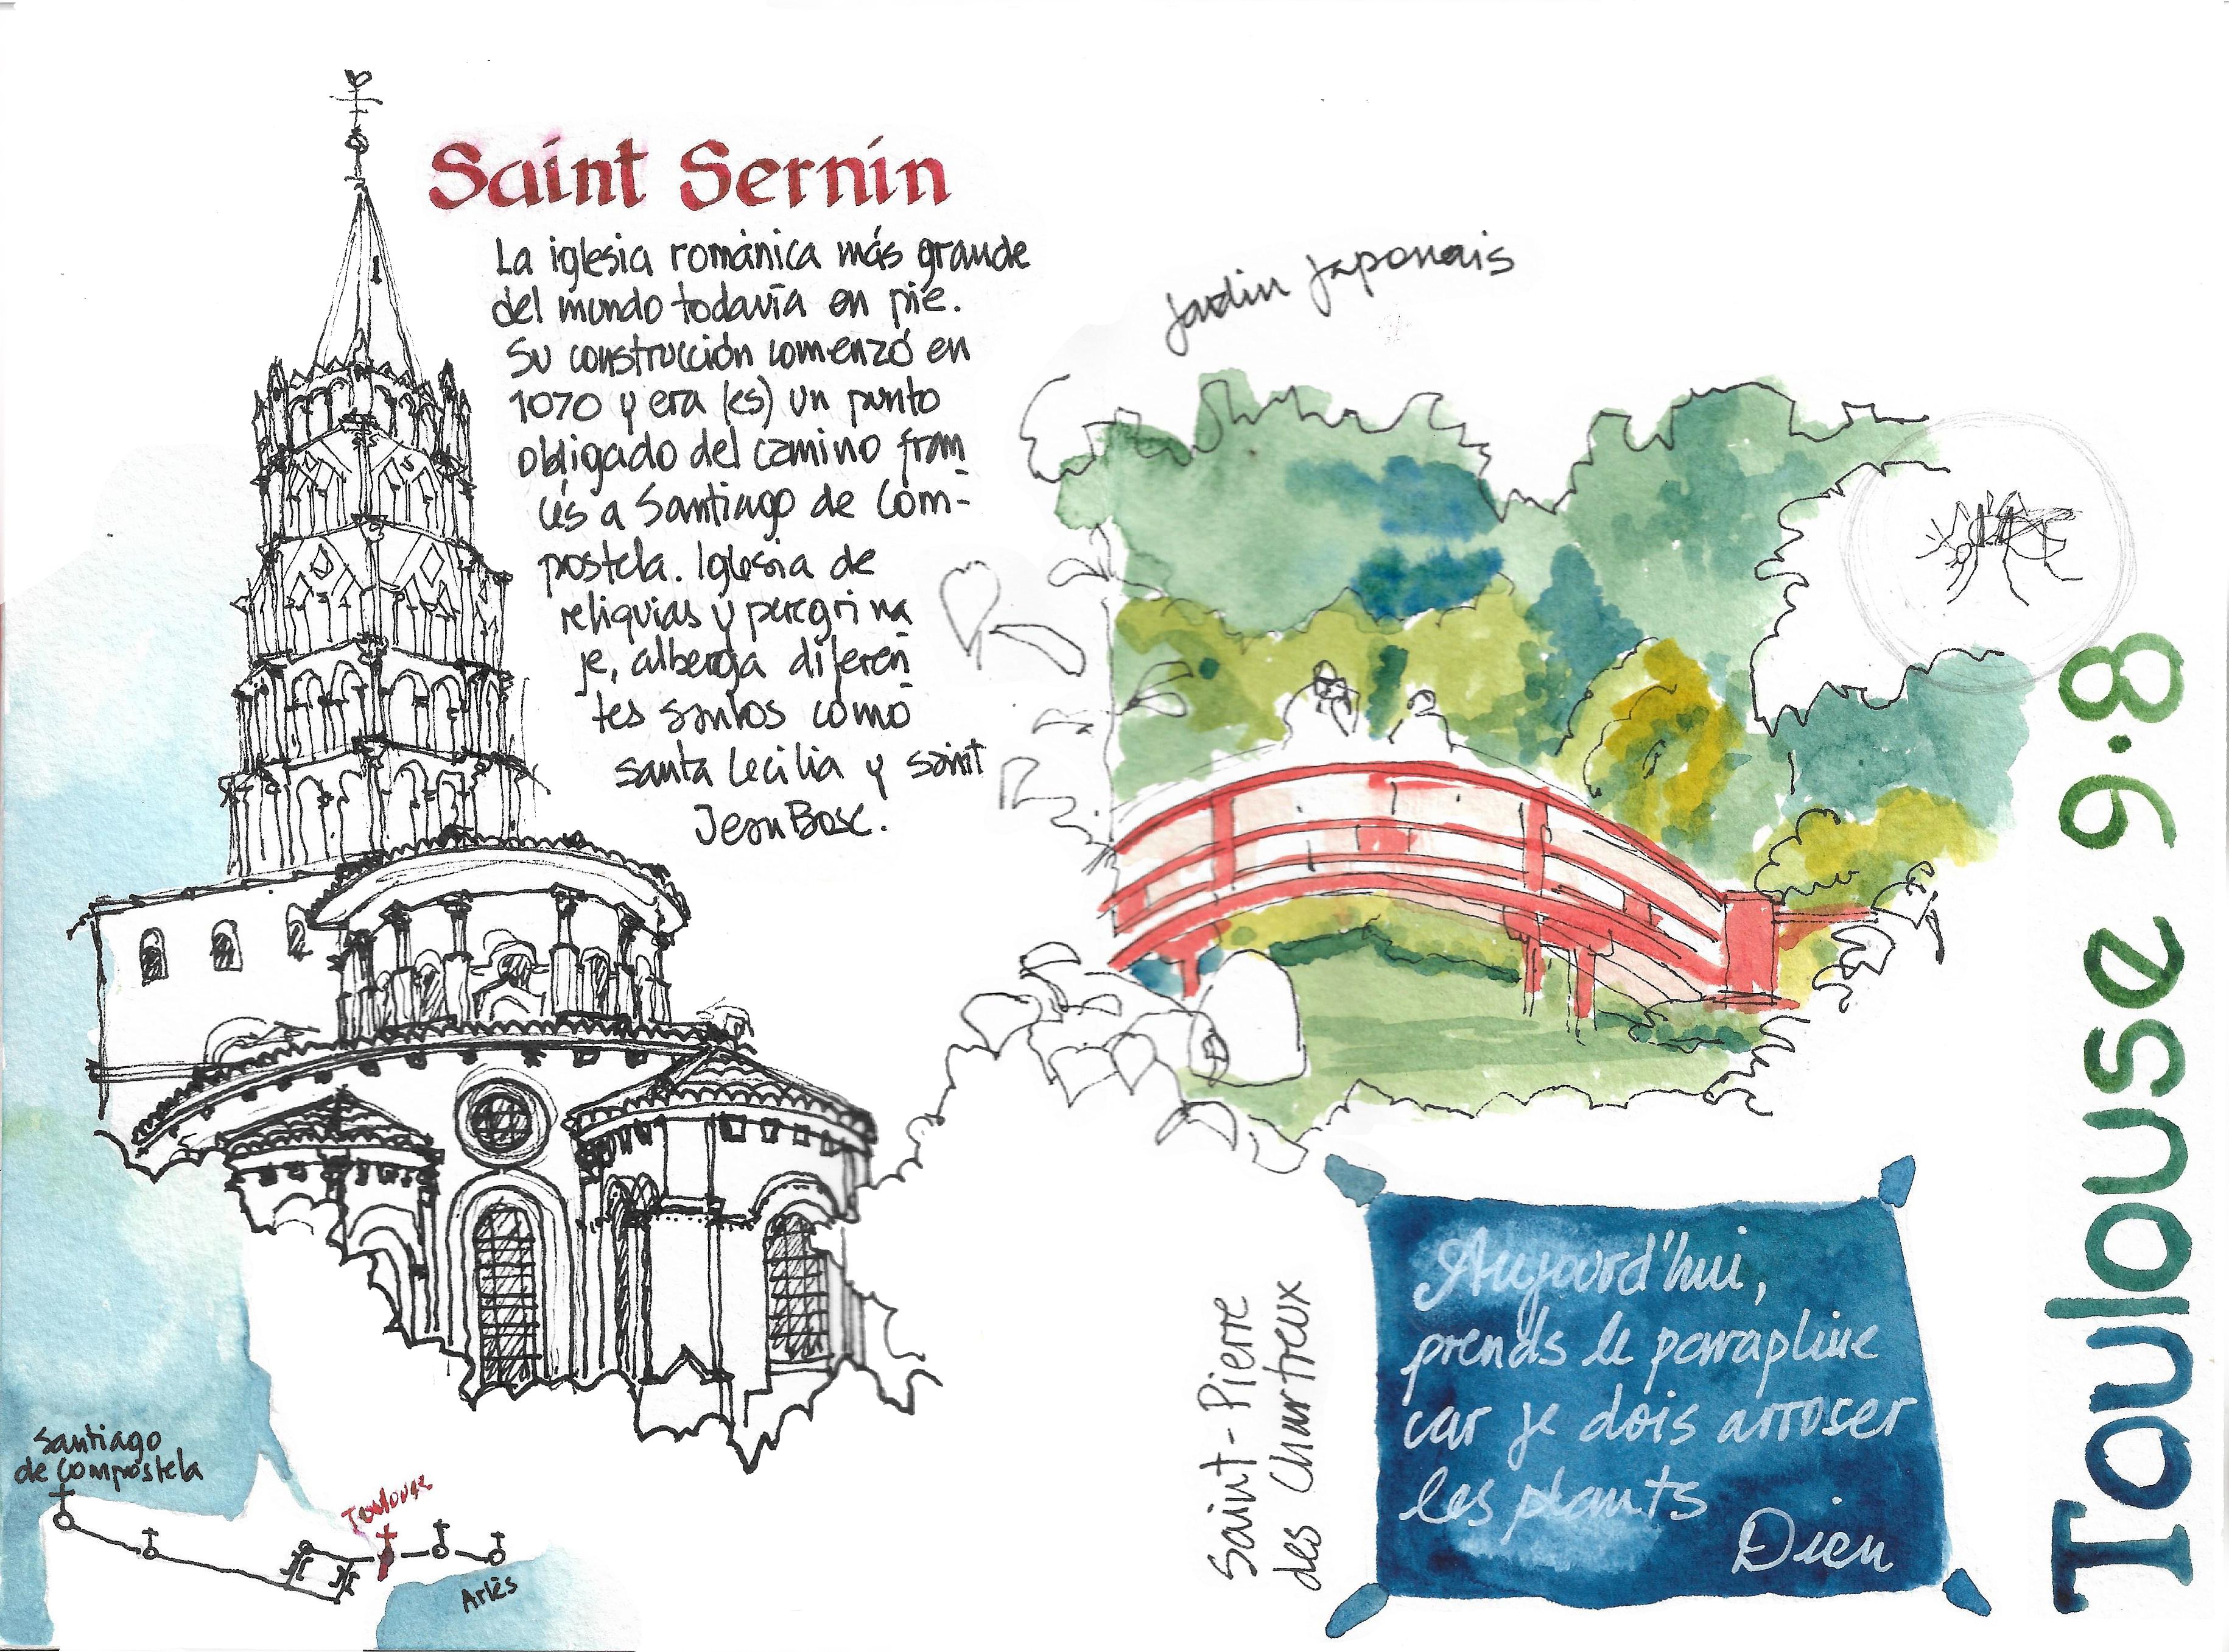 Saint Sernin
La iglesia románica más grande
del mundo todavía en pie.
Su construcción comenzó en
1070 y era (es) un punto
obligado del camino fran
cés a Santiago de Com-
postela. Iglesia de
reliquias y peregrina
je, alberga diferen
tes santos como
santa Cecilia y saint
Jean Bosc.
Jardin Japonais
Toulouse 9·8
Saint-Pierre
des Chartreux
Aujourd'hui,
prends le parapluie
car je dois arroser
les plants
Dieu
Santiago
de Compostela
Toulouse
Arlés